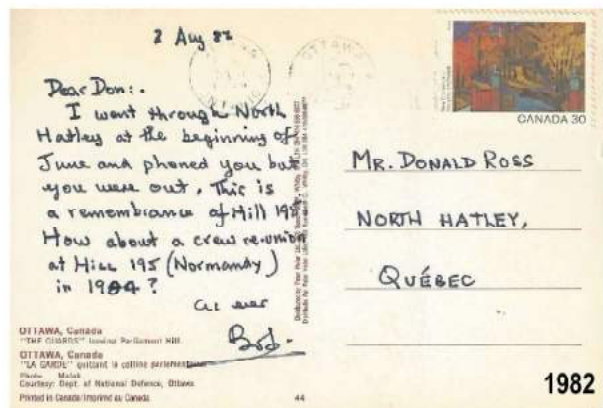 2 Aug 82
OTTAWA
CANADA 30
Dear Don:.
I went through North
Hatley at the beginning of
June and phoned you but
you were out. This is
a remembrance of Hill 195
How about a crew re-union
at Hill 195 (Normandy)
in 1984?
as ever
Bob.
MR. DONALD ROSS
NORTH HATLEY,
QUÉBEC
OTTAWA, Canada
"THE GUARDS" leaving Parliament Hill.
OTTAWA, Canada
"LA GARDE" quittant la colline parlementaire
Photo
Courtesy: Dept. of National Defence, Ottawa
Printed in Canada/Imprimé au Canada
44
1982